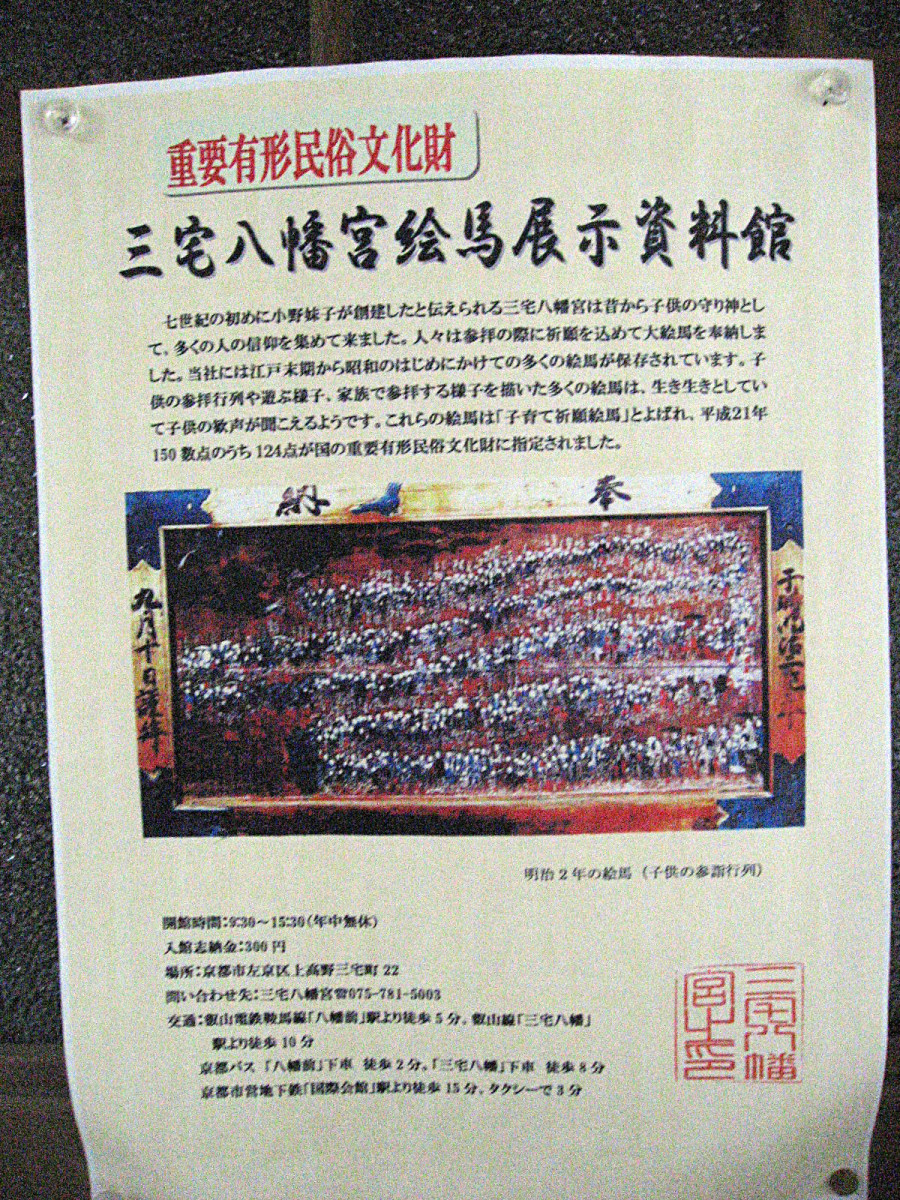 重要有形民俗文化財
三宅八幡宮絵馬展示資料館
七世紀の初めに小野妹子が創建したと伝えられる三宅八幡宮は昔から子供の守り神とし
て、多くの人の信仰を集めて来ました。人々は参拝の際に祈願を込めて大絵馬を奉納しま
した。当社には江戸末期から昭和のはじめにかけての多くの絵馬が保存されています。子
供の参拝行列や遊ぶ様子、家族で参拝する様子を描いた多くの絵馬は、生き生きとしてい
て子供の歓声が聞こえるようです。これらの絵馬は「子育て祈願絵馬」とよばれ、平成21年
150数点のうち124点が国の重要有形民俗文化財に指定されました。
奉納
九月十日
明治2年の絵馬(子供の参詣行列)
開館時間:9:30~15:30(年中無休)
入館志納金:300円
場所:京都市左京区上高野三宅町22
問い合わせ先:三宅八幡宮☎075-781-5003
交通:叡山電鉄鞍馬線「八幡前」駅より徒歩5分。叡山線「三宅八幡」
駅より徒歩10分
京都バス「八幡前」下車 徒歩2分。「三宅八幡」下車 徒歩8分
京都市営地下鉄「国際会館」駅より徒歩15分、タクシーで3分
三宅八幡
宮之印